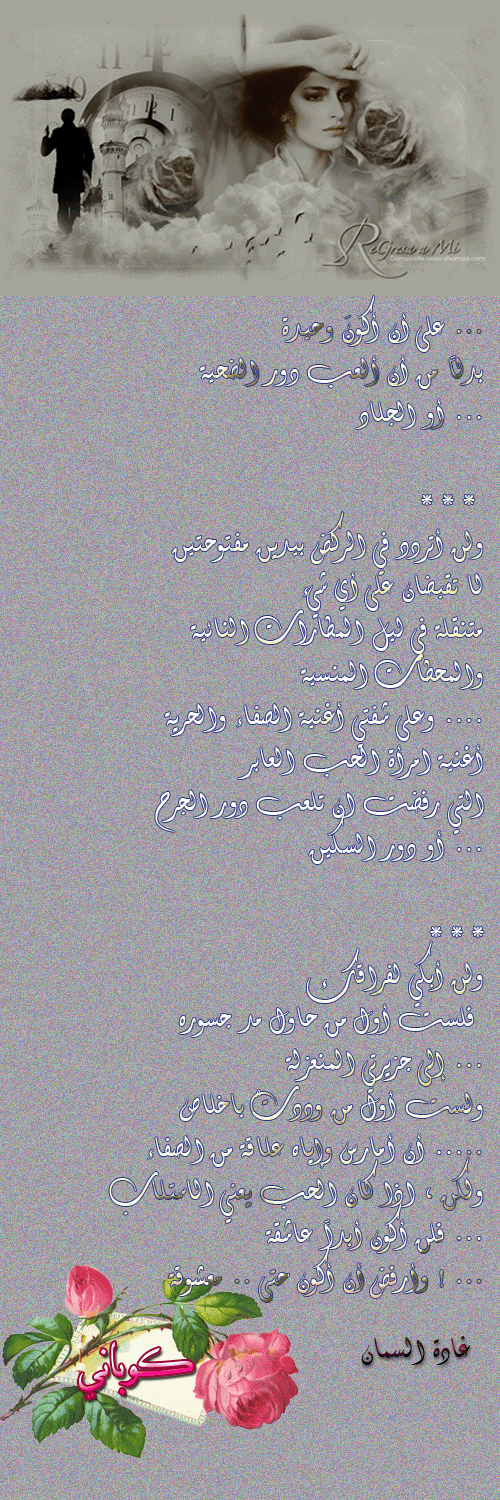 11 12
10
11 12 1
ReGresa a Mi
... على أن أكونَ وحيدة
بدلاً من أن ألعب دور الضحية
... أو الجلاد
* * *
ولن أتردد في الركض بيدين مفتوحتين
لا تقبضان على أي شيء
متنقلة في ليل المطارات النائية
والمحطات المنسية
.... وعلى شفتي أغنية الصفاء والحرية
أغنية امرأة الحب العابر
التي رفضت ان تلعب دور الجرح
... أو دور السكين
* * *
ولن أبكي لفراقك
فلست أول من حاول مد جسوره
... إلى جزيرتي المنعزلة
ولست أول من وددت باخلاص
..... أن أمارس وإياه علاقة من الصفاء
ولكن ، اذا كان الحب يعني الاستلاب
... فلن أكون أبداً عاشقة
... ! وأرفض أن أكون حتى .. معشوقة
غادة السمان
كوباني